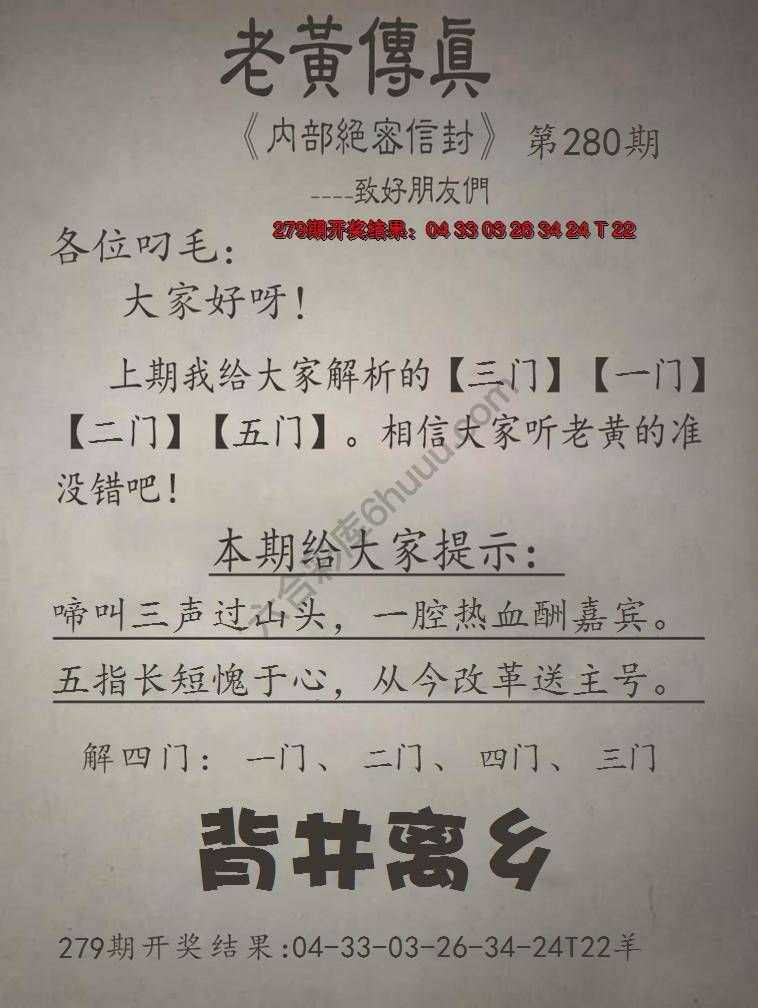 老黃傳眞
《内部絕密信封》 第280期
----致好朋友們
279期开奖结果：04 33 03 26 34 24 T 22
各位叼毛：
大家好呀！
上期我给大家解析的【三门】【一门】
【二门】【五门】。相信大家听老黄的准
没错吧！
本期给大家提示：
啼叫三声过山头，一腔热血酬嘉宾。
五指长短愧于心，从今改革送主号。
解四门： 一门、 二门、 四门、 三门
背井离乡
279期开奖结果:04-33-03-26-34-24T22羊
六合彩库6huuu.com